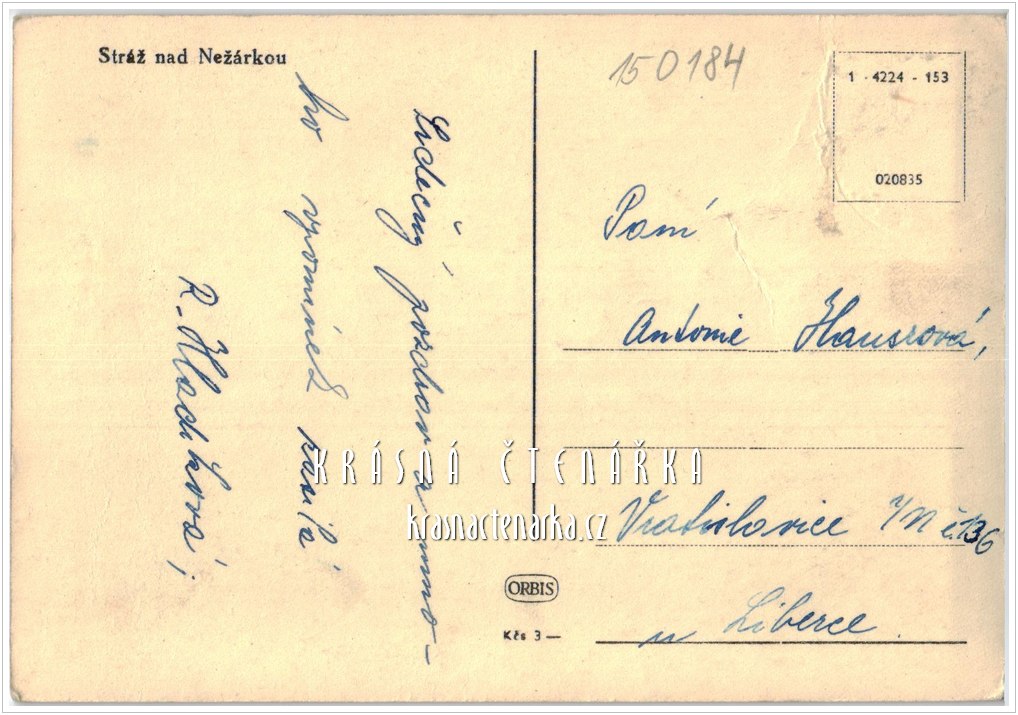 Stráž nad Nežárkou
150184
1 - 4224 - 153
020835
Srdečný pozdrav a mno-
ho vzpomínek posílá
R. Hladíková
Paní
Antonie Hausrová,
Vratislavice n/N č. 136
u Liberce.
KRÁSNÁ ČTENÁŘKA
krasnactenarka.cz
ORBIS
Kčs 3 —